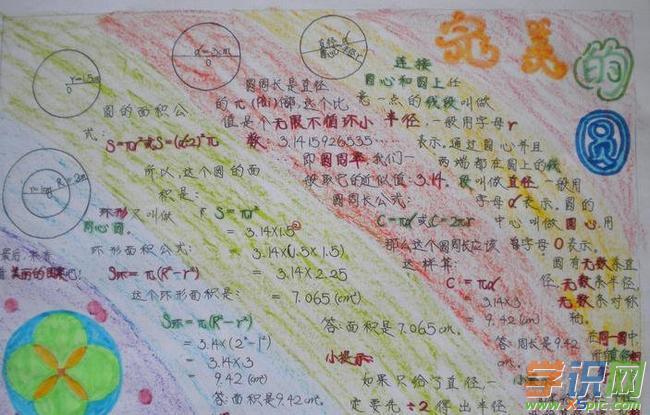 完美的
圆
d=3cm
O
r=1.5m
O
R=2m
圆的面积公
式:
S=πr²或S=(d÷2)²π
所以,这个圆的面
积是:
S=πr²
=3.14×1.5²
=3.14×(1.5×1.5)
=3.14×2.25
=7.065(cm²)
答:面积是7.065cm²。
环形又叫做
同心圆。
环形面积公式:
S环=π(R²-r²)
这个环形面积是:
S环=π(R²-r²)
=3.14×(2²-1²)
=3.14×3
=9.42(cm²)
答:面积是9.42cm²。
圆周长是直径
的π(Pài)倍,这个比
值是个无限不循环小
数:3.1415926535……
即圆周率,我们一
般取它的近似值:3.14。
圆周长公式:
C=πd或C=2πr
那么这个圆周长应该
这样算:
C=πd
=3.14×3
=9.42(cm)
答:周长是9.42
cm。
小提示:
如果只给了直径,一
定要先÷2得出半径
连接
圆心和圆上任
意一点的线段叫做
半径,一般用字母r
表示。通过圆心并且
两端都在圆上的线
段叫做直径,一般用
字母d表示。圆的
中心叫做圆心,用
字母O表示。
圆有无数条直
径,无数条半径,
无数条对称
轴。
在同一圆中
最后,来看
美丽的图案吧!
学识网
www.xspic.com